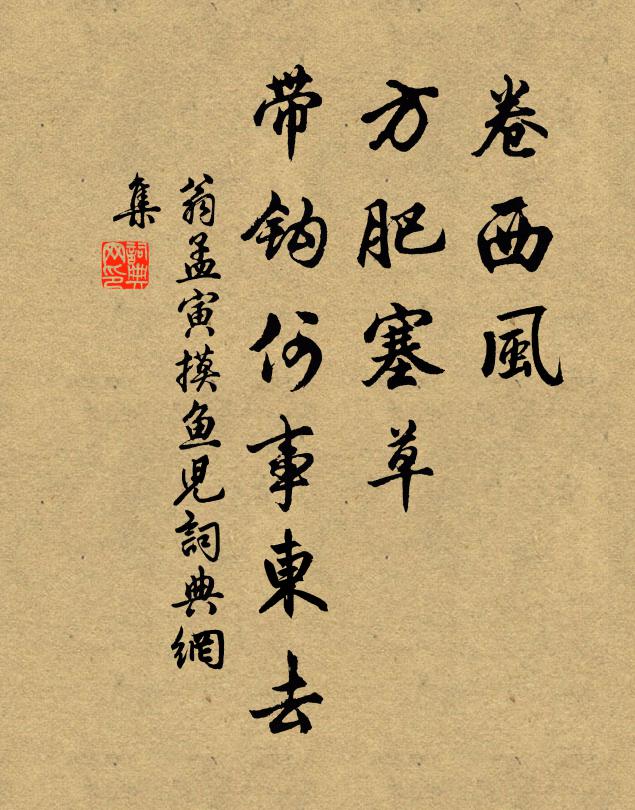 卷西風
方肥塞草
带鈎何事東去
翁孟寅摸鱼児詞典網
集
詞典
网印